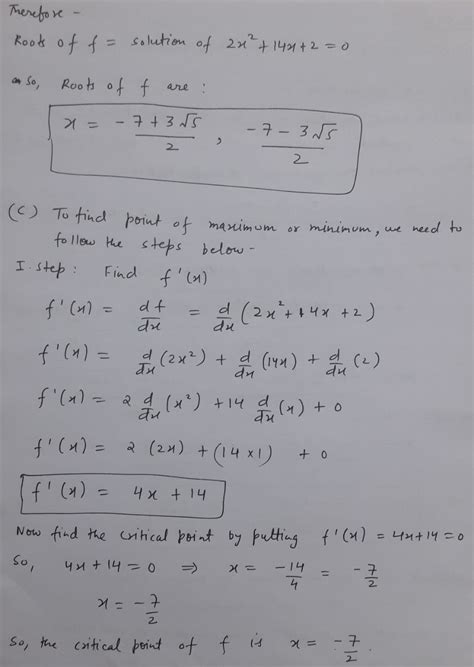 Therefore -
Roots of f = solution of 2x² + 14x + 2 = 0
So, Roots of f are :
x = (-7 + 3√5)/2 , (-7 - 3√5)/2
(C) To find point of maximum or minimum, we need to
follow the steps below -
I step : Find f'(x)
f'(x) = df/dx = d/dx (2x² + 14x + 2)
f'(x) = d/dx (2x²) + d/dx (14x) + d/dx (2)
f'(x) = 2 d/dx (x²) + 14 d/dx (x) + 0
f'(x) = 2 (2x) + (14 × 1) + 0
f'(x) = 4x + 14
Now find the critical point by putting f'(x) = 4x + 14 = 0
So, 4x + 14 = 0 ⇒ x = -14/4 = -7/2
x = -7/2
So, the critical point of f is x = -7/2.